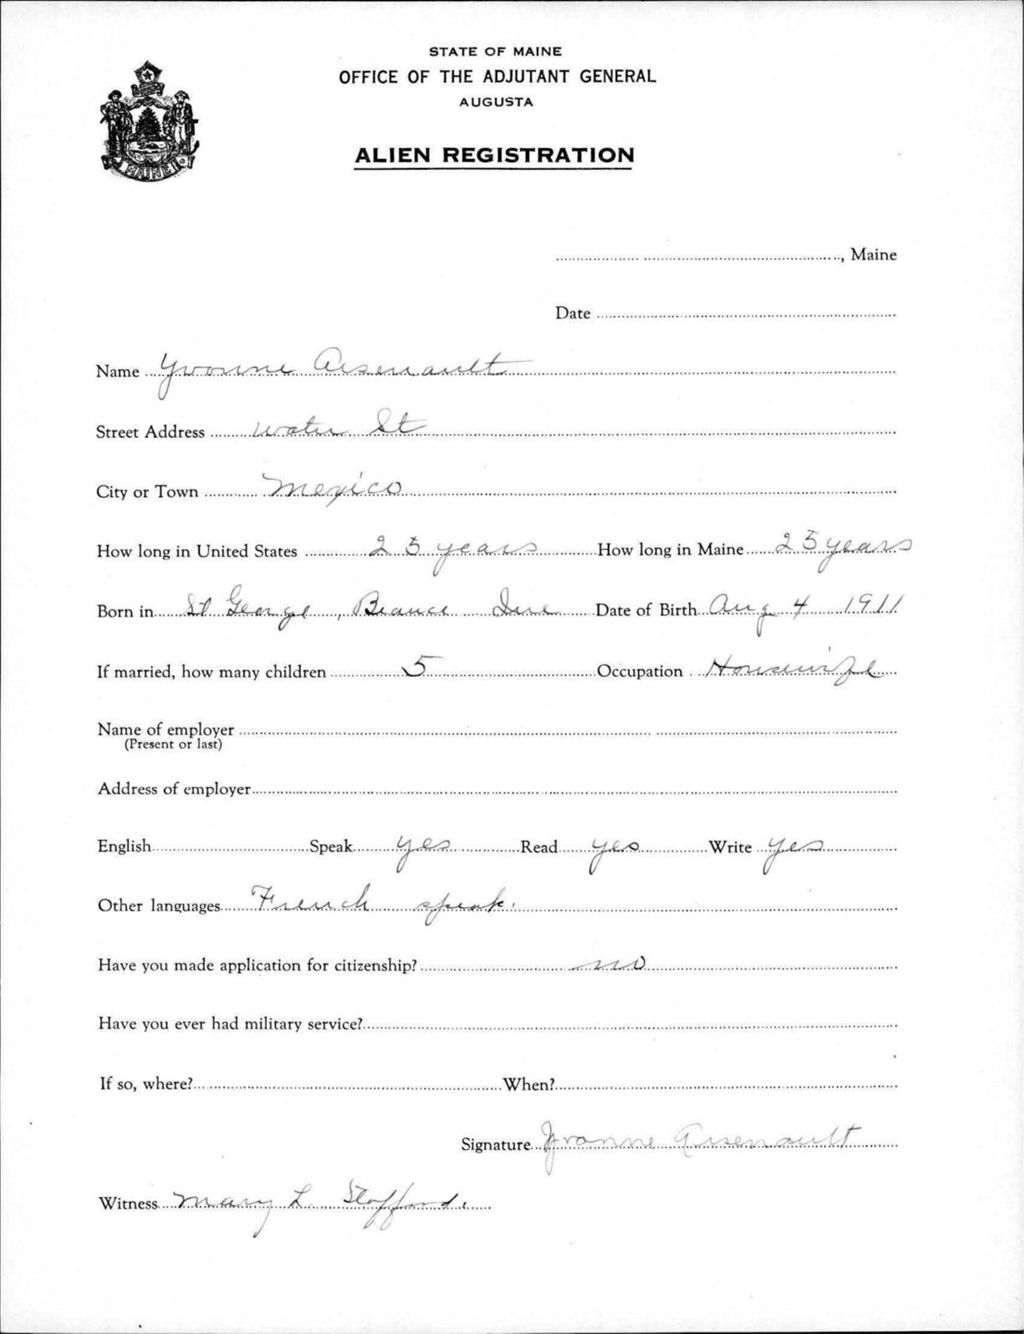 STATE OF MAINE
OFFICE OF THE ADJUTANT GENERAL
AUGUSTA
ALIEN REGISTRATION
MAINE
, Maine
Date
Name Yvonne Arsenault
Street Address Water St
City or Town Mexico
How long in United States 25 years How long in Maine 25 years
Born in St George, Beauce Date of Birth Aug 4 1911
If married, how many children 5 Occupation Housewife
Name of employer
(Present or last)
Address of employer
English Speak yes Read yes Write yes
Other languages French speak.
Have you made application for citizenship? no
Have you ever had military service?
If so, where? When?
Signature Yvonne Arsenault
Witness Mary L. Stafford.